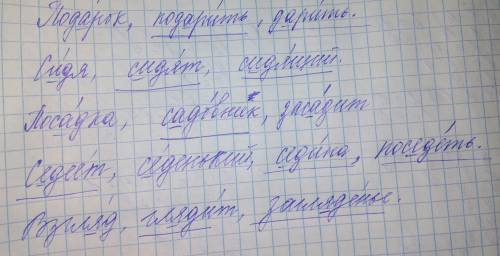 Пода́рок, подари́ть, дари́ть.
Си́дя, сидя́т, сидя́щий.
Поса́дка, садо́вник, заса́дит
Седе́ет, се́денький, седи́на, поседе́ть.
Взгля́д, гляди́т, загляде́нье.